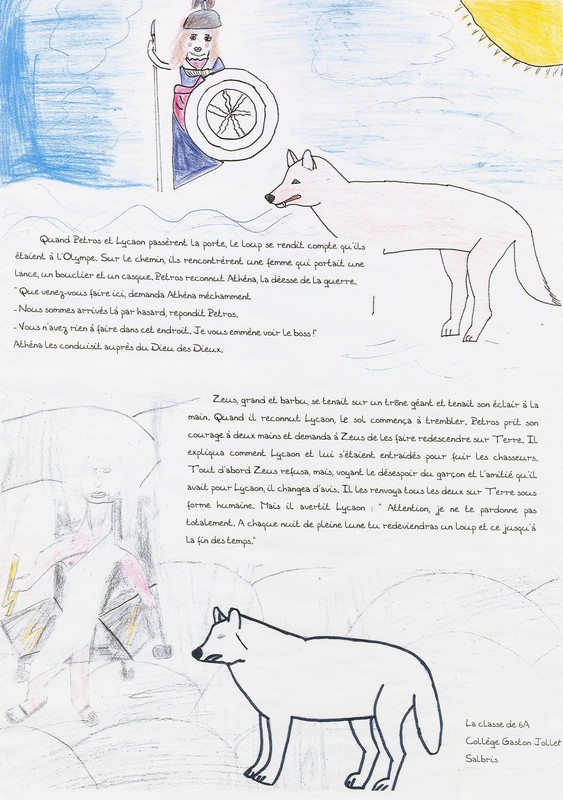 Quand Petros et Lycaon passèrent la porte, le loup se rendit compte qu'ils
étaient à l'Olympe. Sur le chemin, ils rencontrèrent une femme qui portait une
lance, un bouclier et un casque. Petros reconnut Athéna, la déesse de la guerre.
" Que venez-vous faire ici, demanda Athéna méchamment
- Nous sommes arrivés là par hasard, repondit Petros.
- Vous n'avez rien à faire dans cet endroit. Je vous emmène voir le boss !"
Athéna les conduisit auprès du Dieu des Dieux.
Zeus, grand et barbu, se tenait sur un trône géant et tenait son éclair à la
main. Quand il reconnut Lycaon, le sol commença à trembler. Petros prit son
courage à deux mains et demanda à Zeus de les faire redescendre sur Terre. Il
expliqua comment Lycaon et lui s'étaient entraidés pour fuir les chasseurs.
Tout d'abord Zeus refusa, mais, voyant le désespoir du garçon et l'amitié qu'il
avait pour Lycaon, il changea d'avis. Il les renvoya tous les deux sur Terre sous
forme humaine. Mais il avertit Lycaon : " Attention, je ne te pardonne pas
totalement. A chaque nuit de pleine lune tu redeviendras un loup et ce jusqu'à
la fin des temps."
La classe de 6A
Collège Gaston Jollet
Salbris